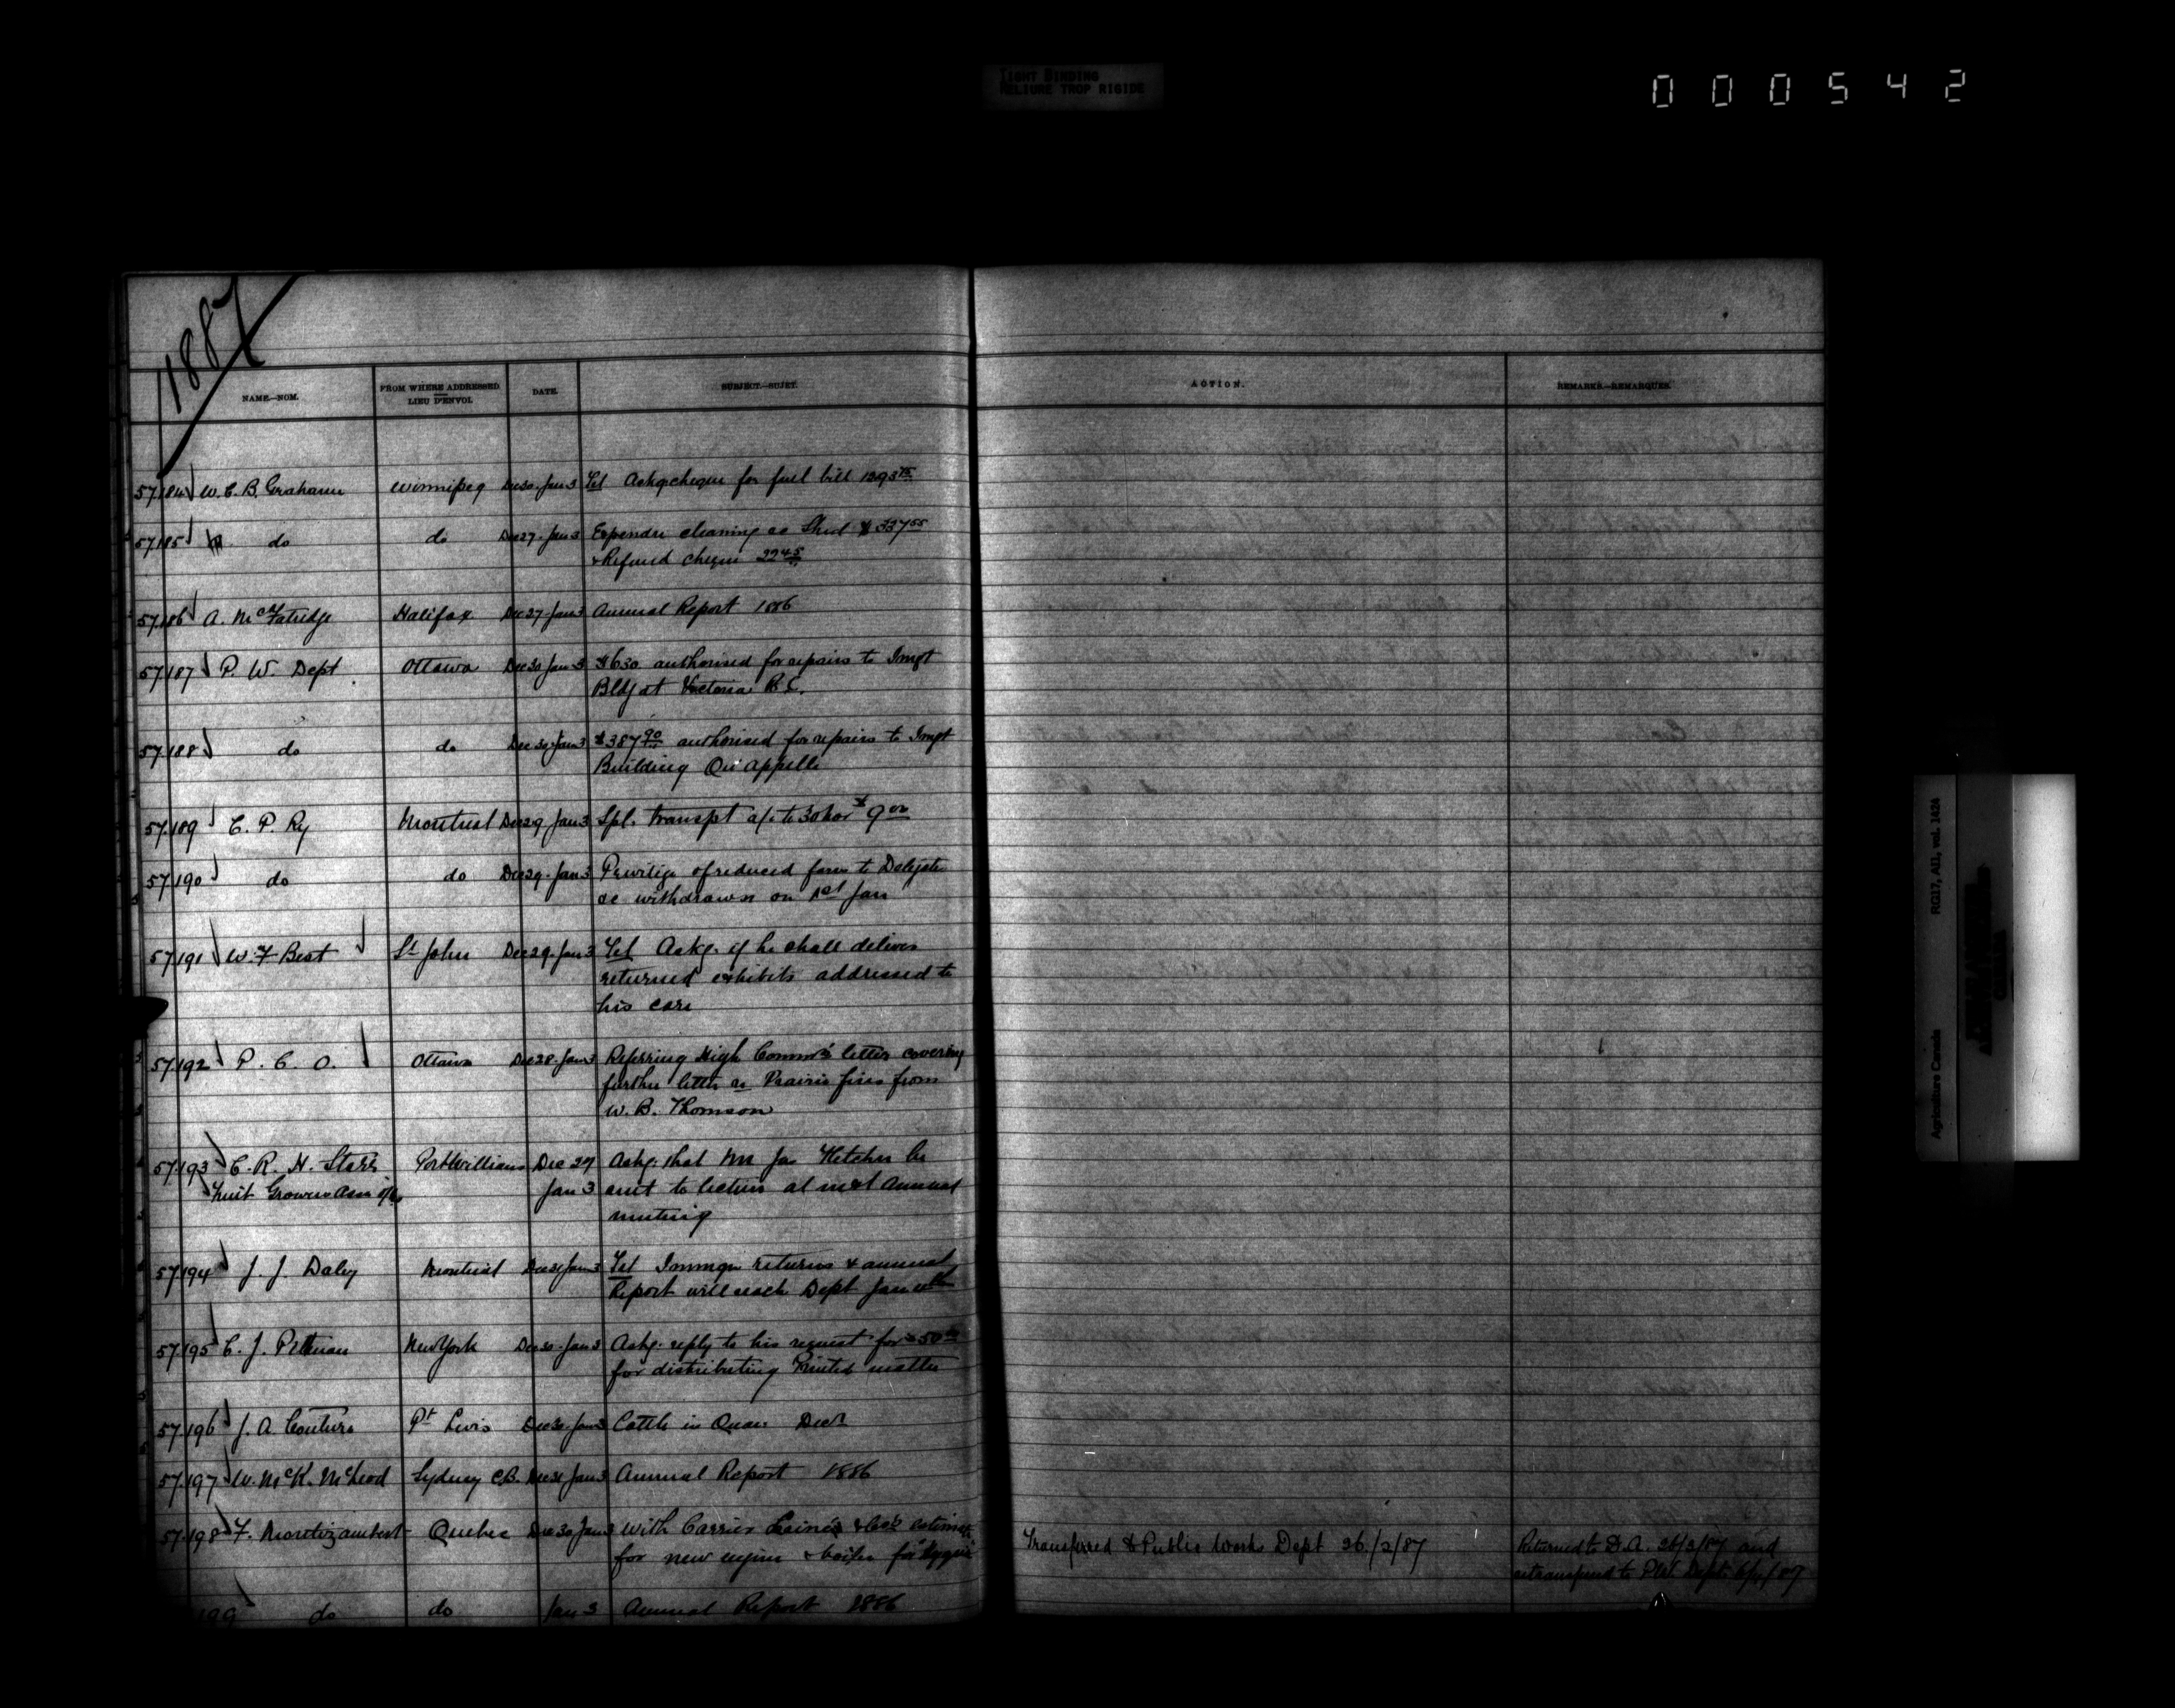 TIGHT BINDING
RELIURE TROP RIGIDE
000542
1887
NAME.—NOM.
FROM WHERE ADDRESSED
LIEU D'ENVOI.
DATE.
SUBJECT.—SUJET.
ACTION.
REMARKS.—REMARQUES.
57184 W. C. B. Grahame Winnipeg Dec 30 Jan 3 Tel Askg cheque for fuel bill
57185 do do Dec 27 Jan 3 Expendre cleaning &c Shed $327 55
& Refund cheque 22 45
57186 A. McFatridge Halifax Dec 27 Jan 3 Annual Report 1886
57187 P. W. Dept Ottawa Dec 30 Jan 3 $630 authorised for repairs to Imgt
Bldg at Victoria B.C.
57188 do do Dec 30 Jan 3 $387 90 authorised for repairs to Imgt
Building Qu'appelle
57189 C. P. Ry Montreal Dec 29 Jan 3 Spl. transpt a/c to 30 Nov $9 00
57190 do do Dec 29 Jan 3 Privilege of reduced fares to Delegates
&c withdrawn on 1st Jan
57191 W. F. Best St John Dec 29 Jan 3 Tel Askg. if he shall deliver
returned exhibits addressed to
his care
57192 P. C. O. Ottawa Dec 28 Jan 3 Referring High Commr's letter covering
further letter re Prairie fires from
W. B. Thomson
57193 C. R. H. Starr Port Williams Dec 27 Askg. that Mr Jas Fletcher be
Fruit Growers Assn Jan 3 sent to lecture at next Annual
meeting
57194 J. J. Daley Montreal Dec 31 Jan 3 Tel Immgn returns & annual
Report will reach Dept Jan
57195 C. J. New York Dec 30 Jan 3 Askg. reply to his request for $50 00
for distributing Printed matter
57196 J. A. Couture Pt Levis Dec 30 Jan 3 Cattle in Quar. Decr
57197 W. McK. McLeod Sydney C.B. Dec 31 Jan 3 Annual Report 1886
57198 F. Montizambert Quebec Dec 30 Jan 3 With Carrier Lainé's & Co's estimate
for new engine & boiler for "Hygeia" Transferred to Public Works Dept 26/2/87 Returned to D.A. 28/2/87 and
retransferred to P.W. Dept.
199 do do Jan 3 Annual Report 1886
Agriculture Canada RG17, AII, vol. 1424